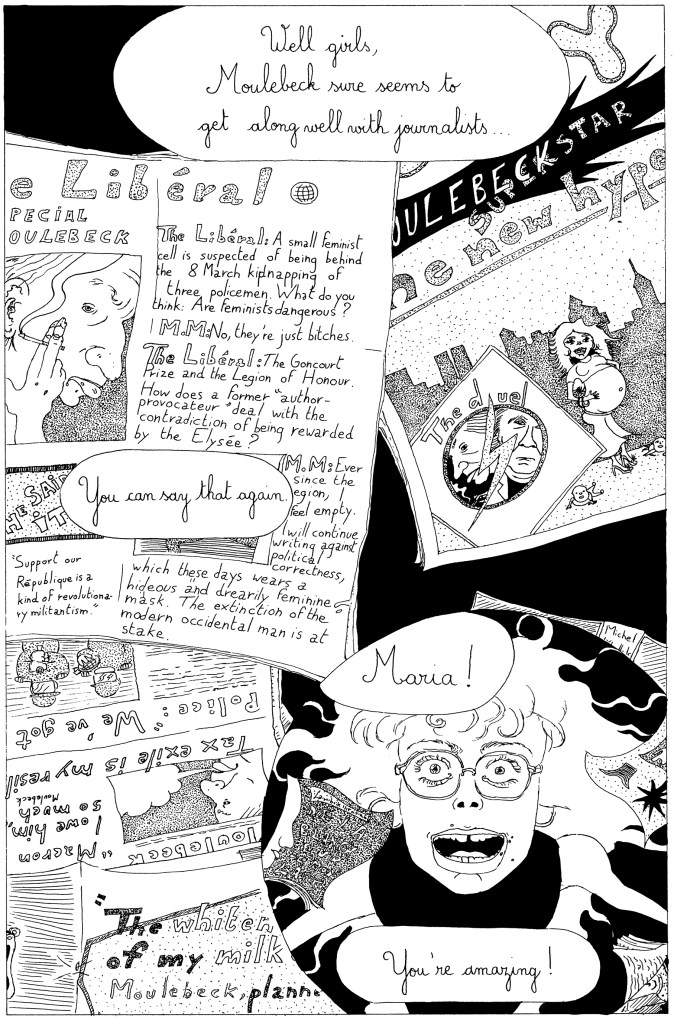 Well girls,
Moulebeck sure seems to
get along well with journalists...
Y
OULEBECKSTAR
SUPER
he new hype
The duel
e Libéral
PECIAL
OULEBECK
The Libéral: A small feminist
cell is suspected of being behind
the 8 March kidnapping of
three policemen. What do you
think: Are feminists dangerous?
M.M: No, they're just bitches.
The Libéral: The Goncourt
Prize and the Legion of Honour.
How does a former "author-
provocateur" deal with the
contradiction of being rewarded
by the Elysée?
You can say that again.
M.M: Ever
since the
Legion, I
feel empty.
I will continue
writing against
political
correctness,
which these days wears a
hideous and drearily feminine
mask. The extinction of the
modern occidental man is at
stake.
HE SAID
iT
"Support our
République is a
kind of revolutiona-
ry militantism."
Maria!
Michel
Police:
"We've got
Tax exile is my resili
"Macron
I owe him,
so much
Moulebeck
Moulebeck
"The whiten
of my milk
Moulebeck, planne
You're amazing!